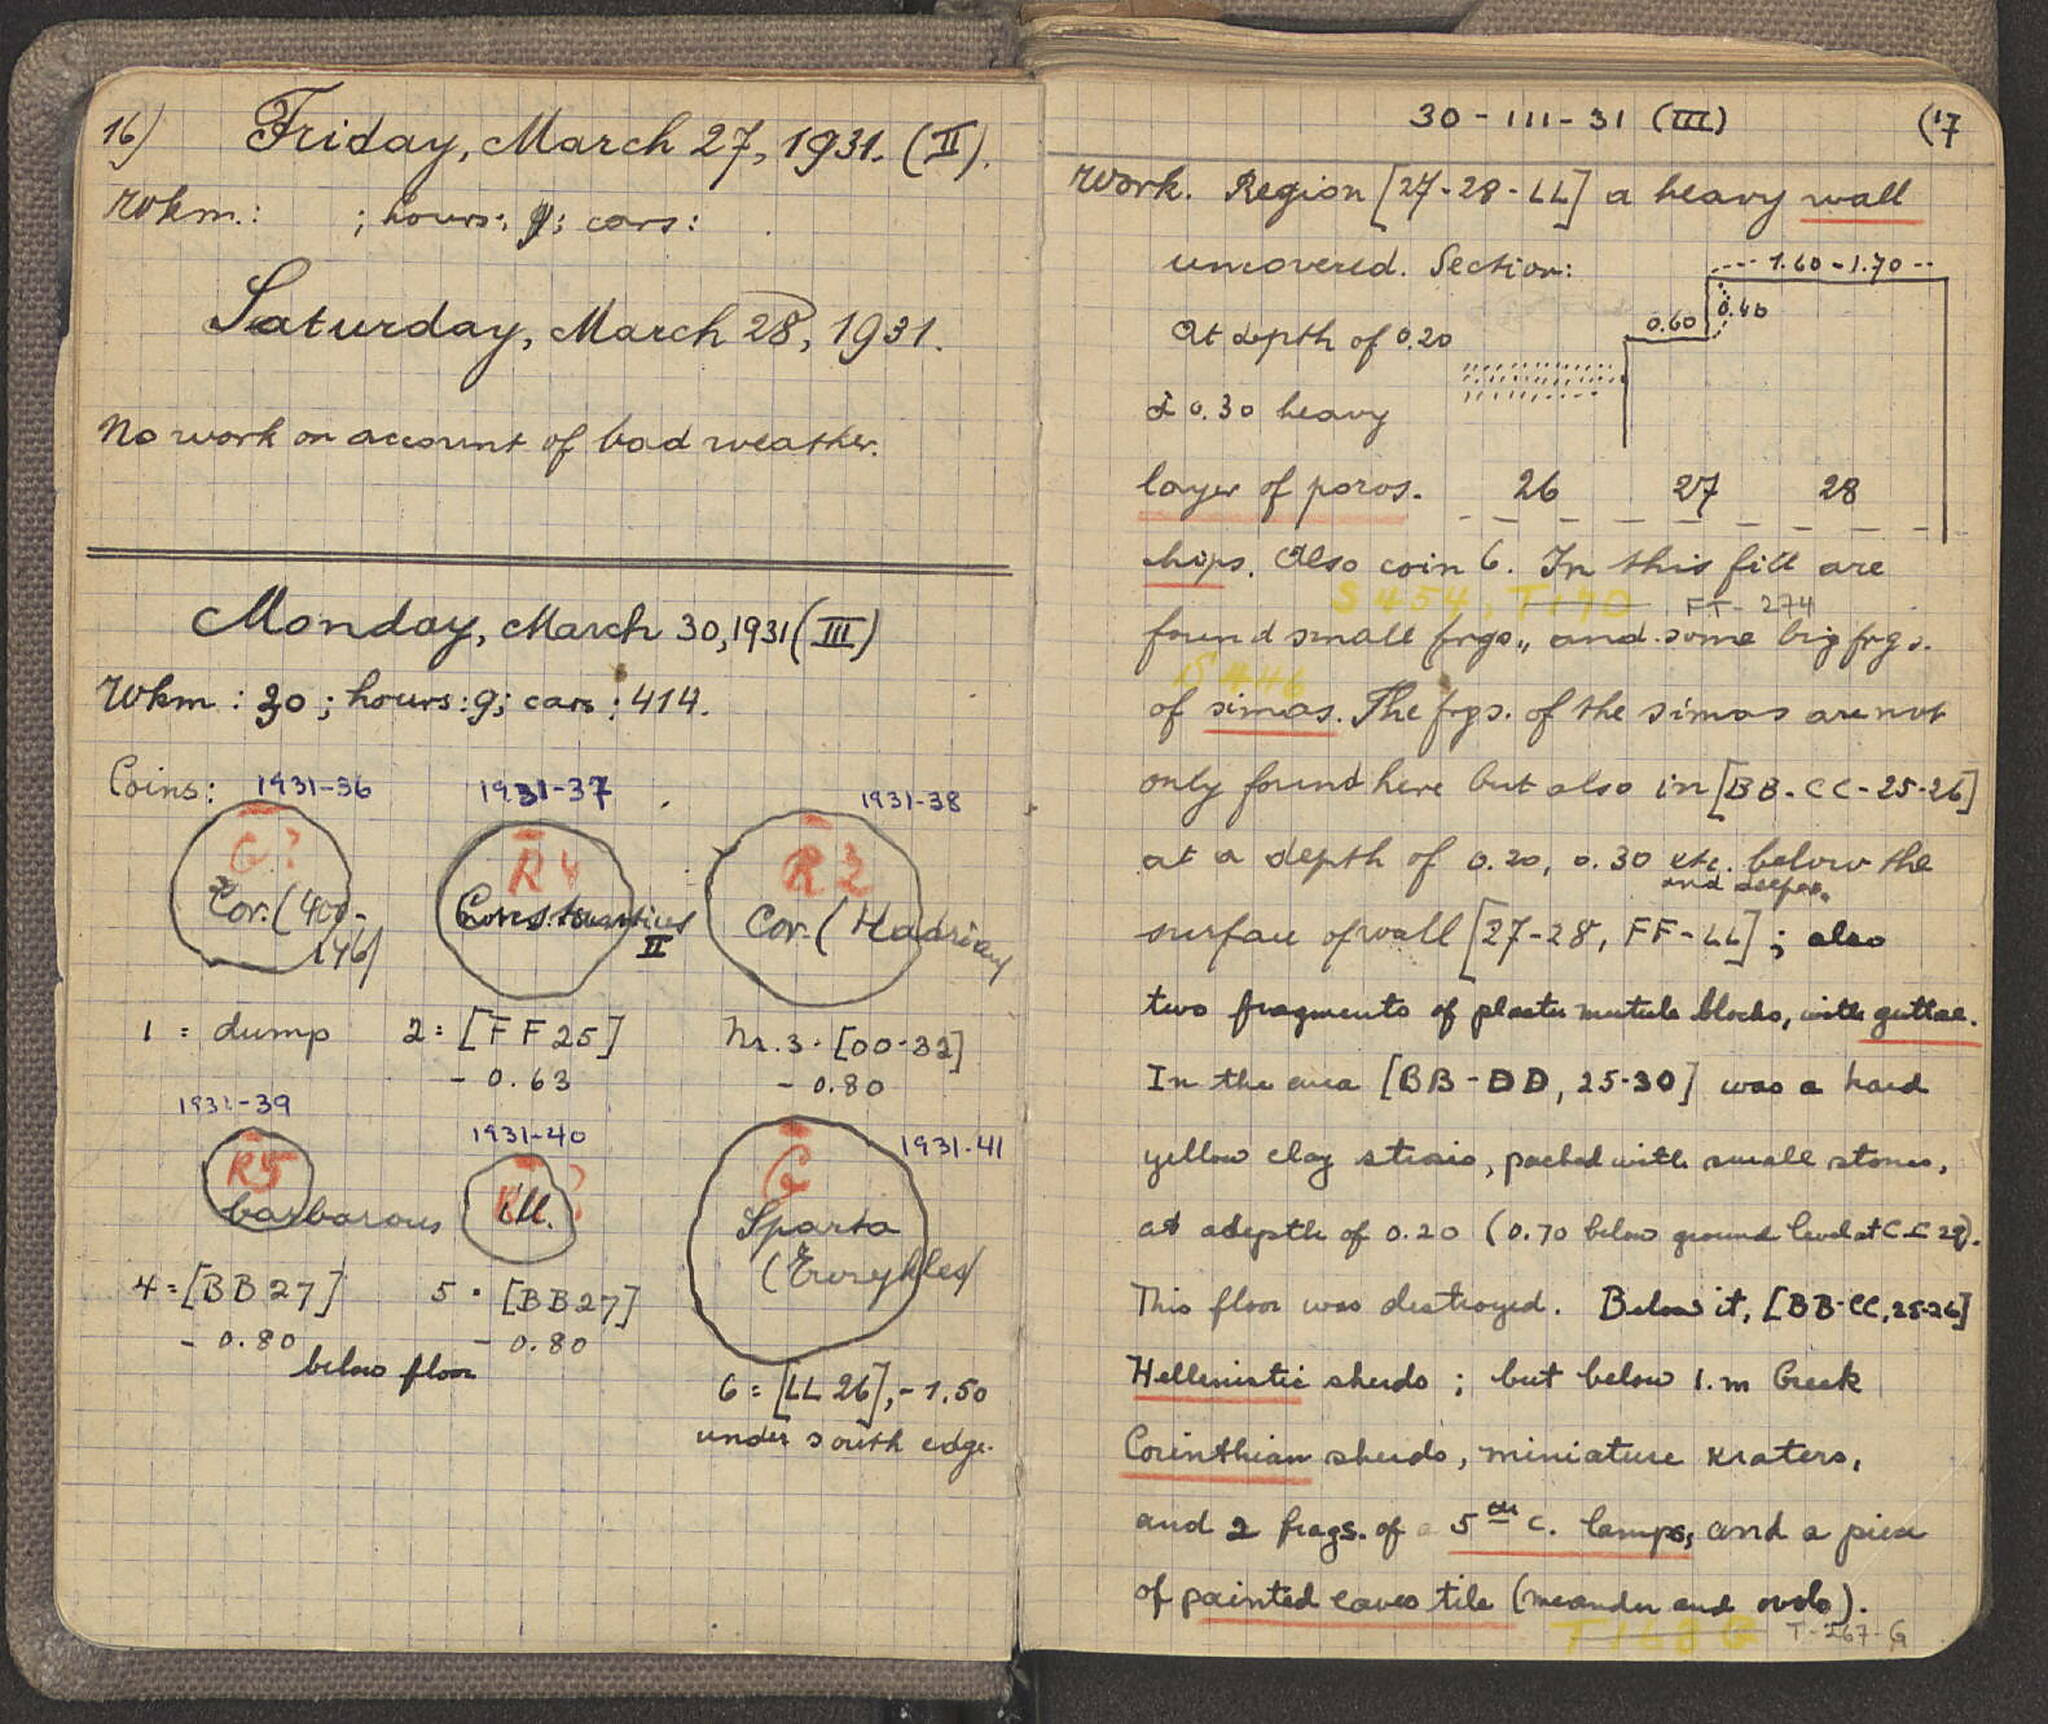 16)
Friday, March 27, 1931. (II).
Wkm.: ; hours: 9; cars:
Saturday, March 28, 1931.
No work on account of bad weather.
Monday, March 30, 1931 (III)
Wkm : 30 ; hours : 9; cars : 414.
Coins: 1931-36 1931-37 1931-38
G? R4 R2
Cor. (400-146) Constantius II Cor. (Hadrian)
1 = dump 2 = [FF25] Nr. 3 = [OO-32]
- 0.63 - 0.80
1931-39 1931-40 1931-41
R5 ill. G
barbarous Sparta
(Eurykles)
4 = [BB27] 5 = [BB27]
- 0.80 - 0.80
below floor
6 = [LL 26], - 1.50
under south edge.
30-III-31 (III) (17
Work. Region [27-28-LL] a heavy wall
uncovered. Section: 1.60-1.70
At depth of 0.20 0.60 0.40
& 0.30 heavy
layer of poros. 26 27 28
chips. Also coin 6. In this fill are
S 454, T170 FT-274
found small frgs., and some big frgs.
S 446
of simas. The frgs. of the simas are not
only found here but also in [BB-CC-25-26]
at a depth of 0.20, 0.30 etc. below the
and deeper.
surface of wall [27-28, FF-LL]; also
two fragments of plaster mutule blocks, with guttae.
In the area [BB-DD, 25-30] was a hard
yellow clay strosis, packed with small stones,
at a depth of 0.20 (0.70 below ground level at CC 29).
This floor was destroyed. Below it, [BB-CC, 25-26]
Hellenistic sherds; but below 1.m Greek
Corinthian sherds, miniature kraters,
and 2 frags. of a 5th c. lamps, and a piece
of painted eaves tile (meander and ovolo).
T168G T-267-G